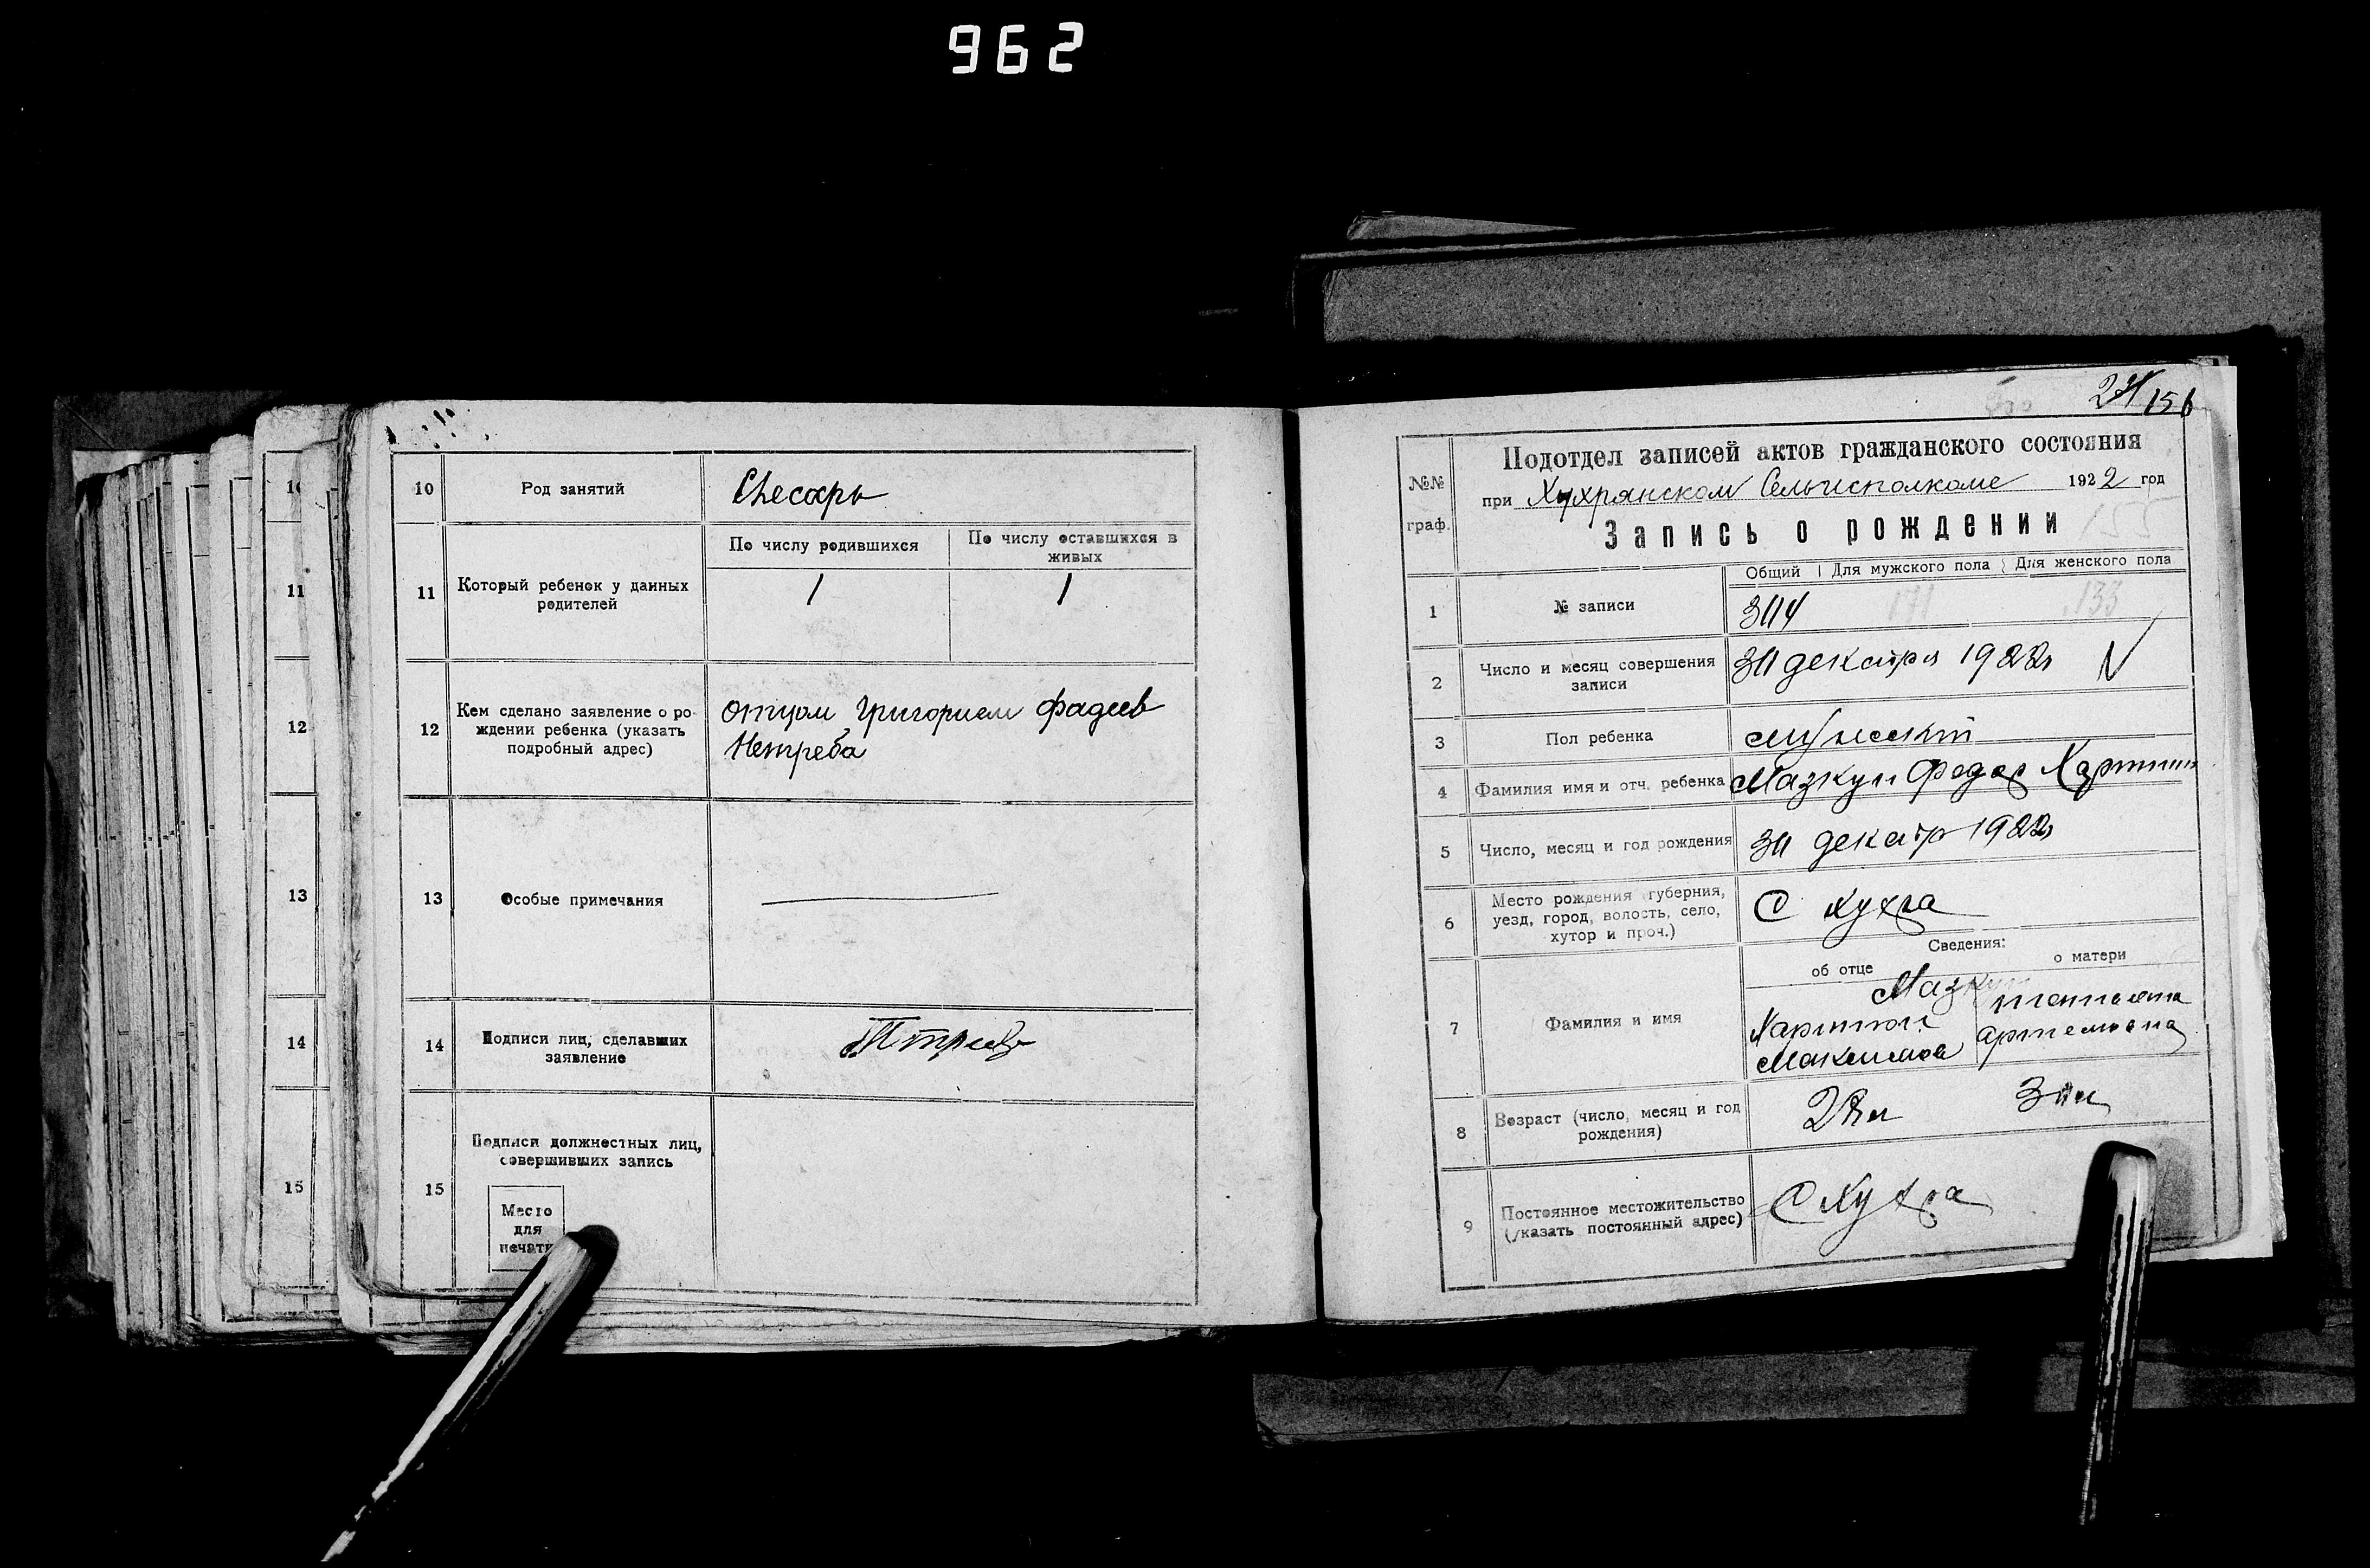 962
10 Род занятий Слесарь
11 Который ребенок у данных родителей
По числу родившихся По числу оставшихся в живых
1 1
12 Кем сделано заявление о рождении ребенка (указать подробный адрес)
отцом Григорием Фадеев
Нетреба
13 Особые примечания
14 Подписи лиц, сделавших заявление
15 Подписи должностных лиц, совершивших запись
Место
для
печати
10
11
12
13
14
15
156
№№ граф.
Подотдел записей актов гражданского состояния
при Хухрянском Сельисполкоме 1922 год
Запись о рождении 155
Общий Для мужского пола Для женского пола
1 № записи 304 171 133
2 Число и месяц совершения записи 30 декабря 1922
3 Пол ребенка мужской
4 Фамилия имя и отч. ребенка Мазкун Федор
5 Число, месяц и год рождения 30 декабр 1922
6 Место рождения (губерния, уезд, город, волость, село, хутор и проч.) С Хухра
Сведения:
об отце о матери
7 Фамилия и имя
Мазкун
Харитон Татьяна
Максимов Артемовна
8 Возраст (число, месяц и год рождения)
9 Постоянное местожительство (указать постоянный адрес) С Хухра